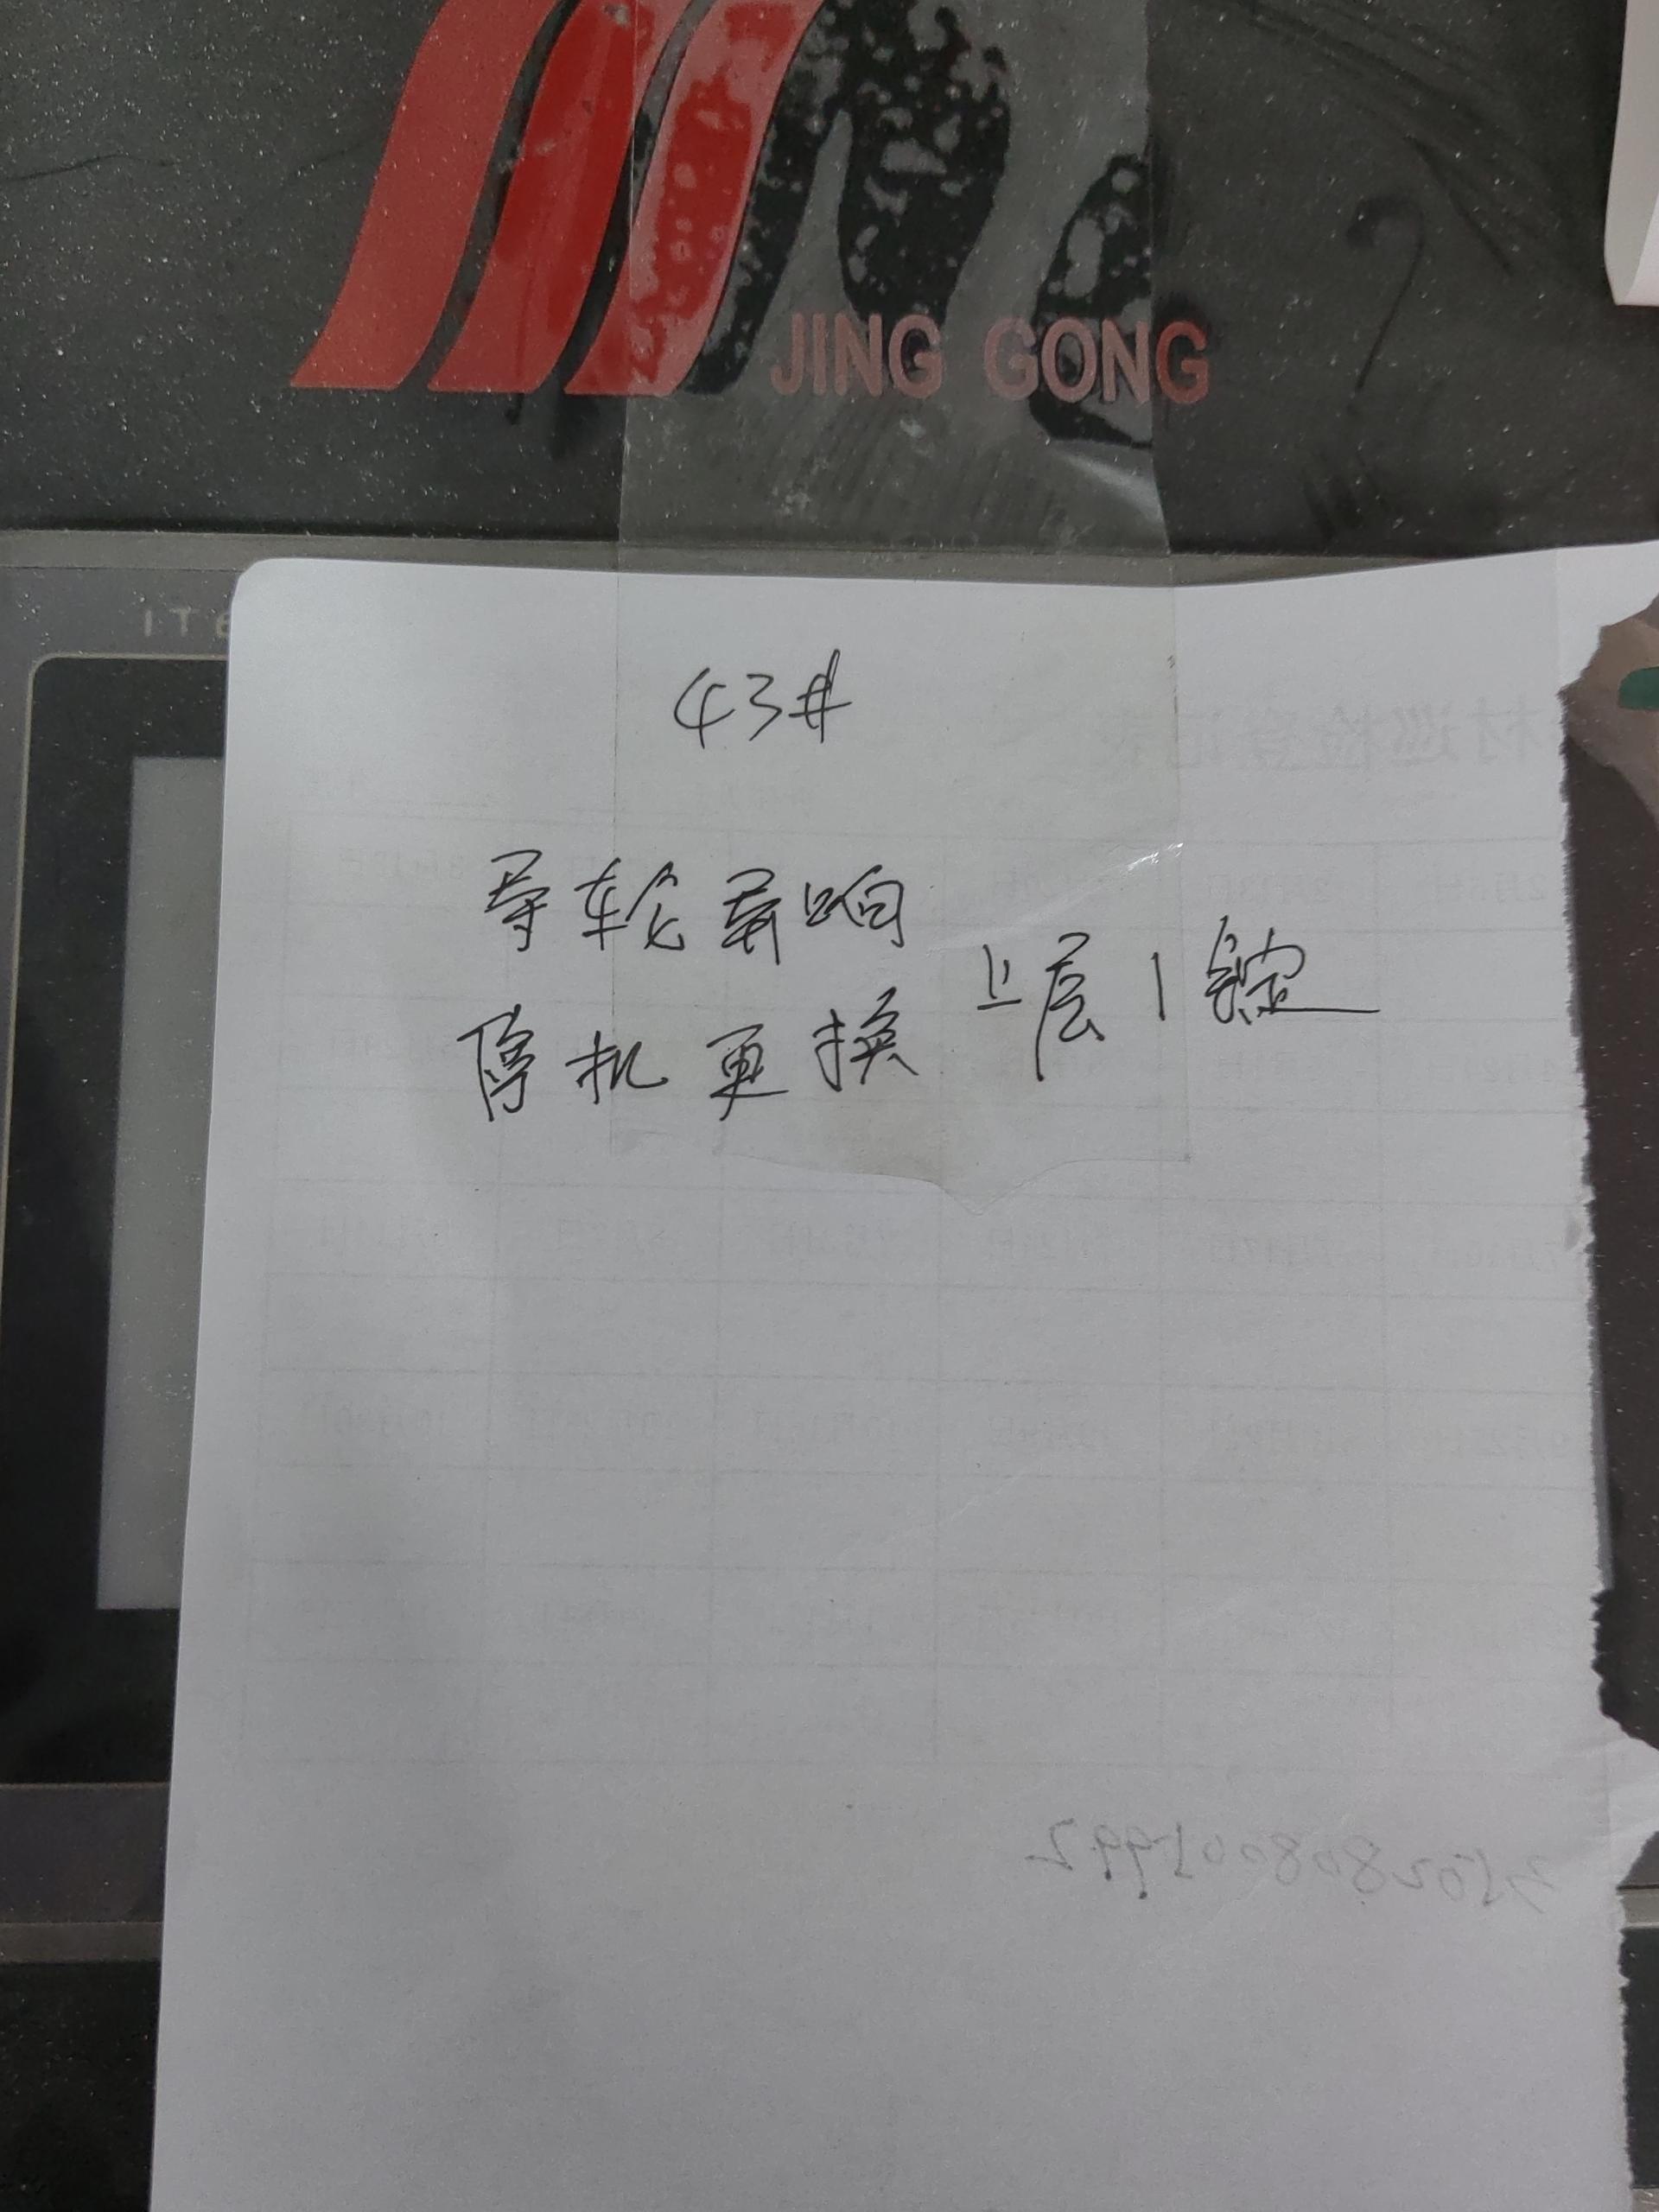 JING GONG
ITE
43#
导轮异响
停机更换
上层1锭